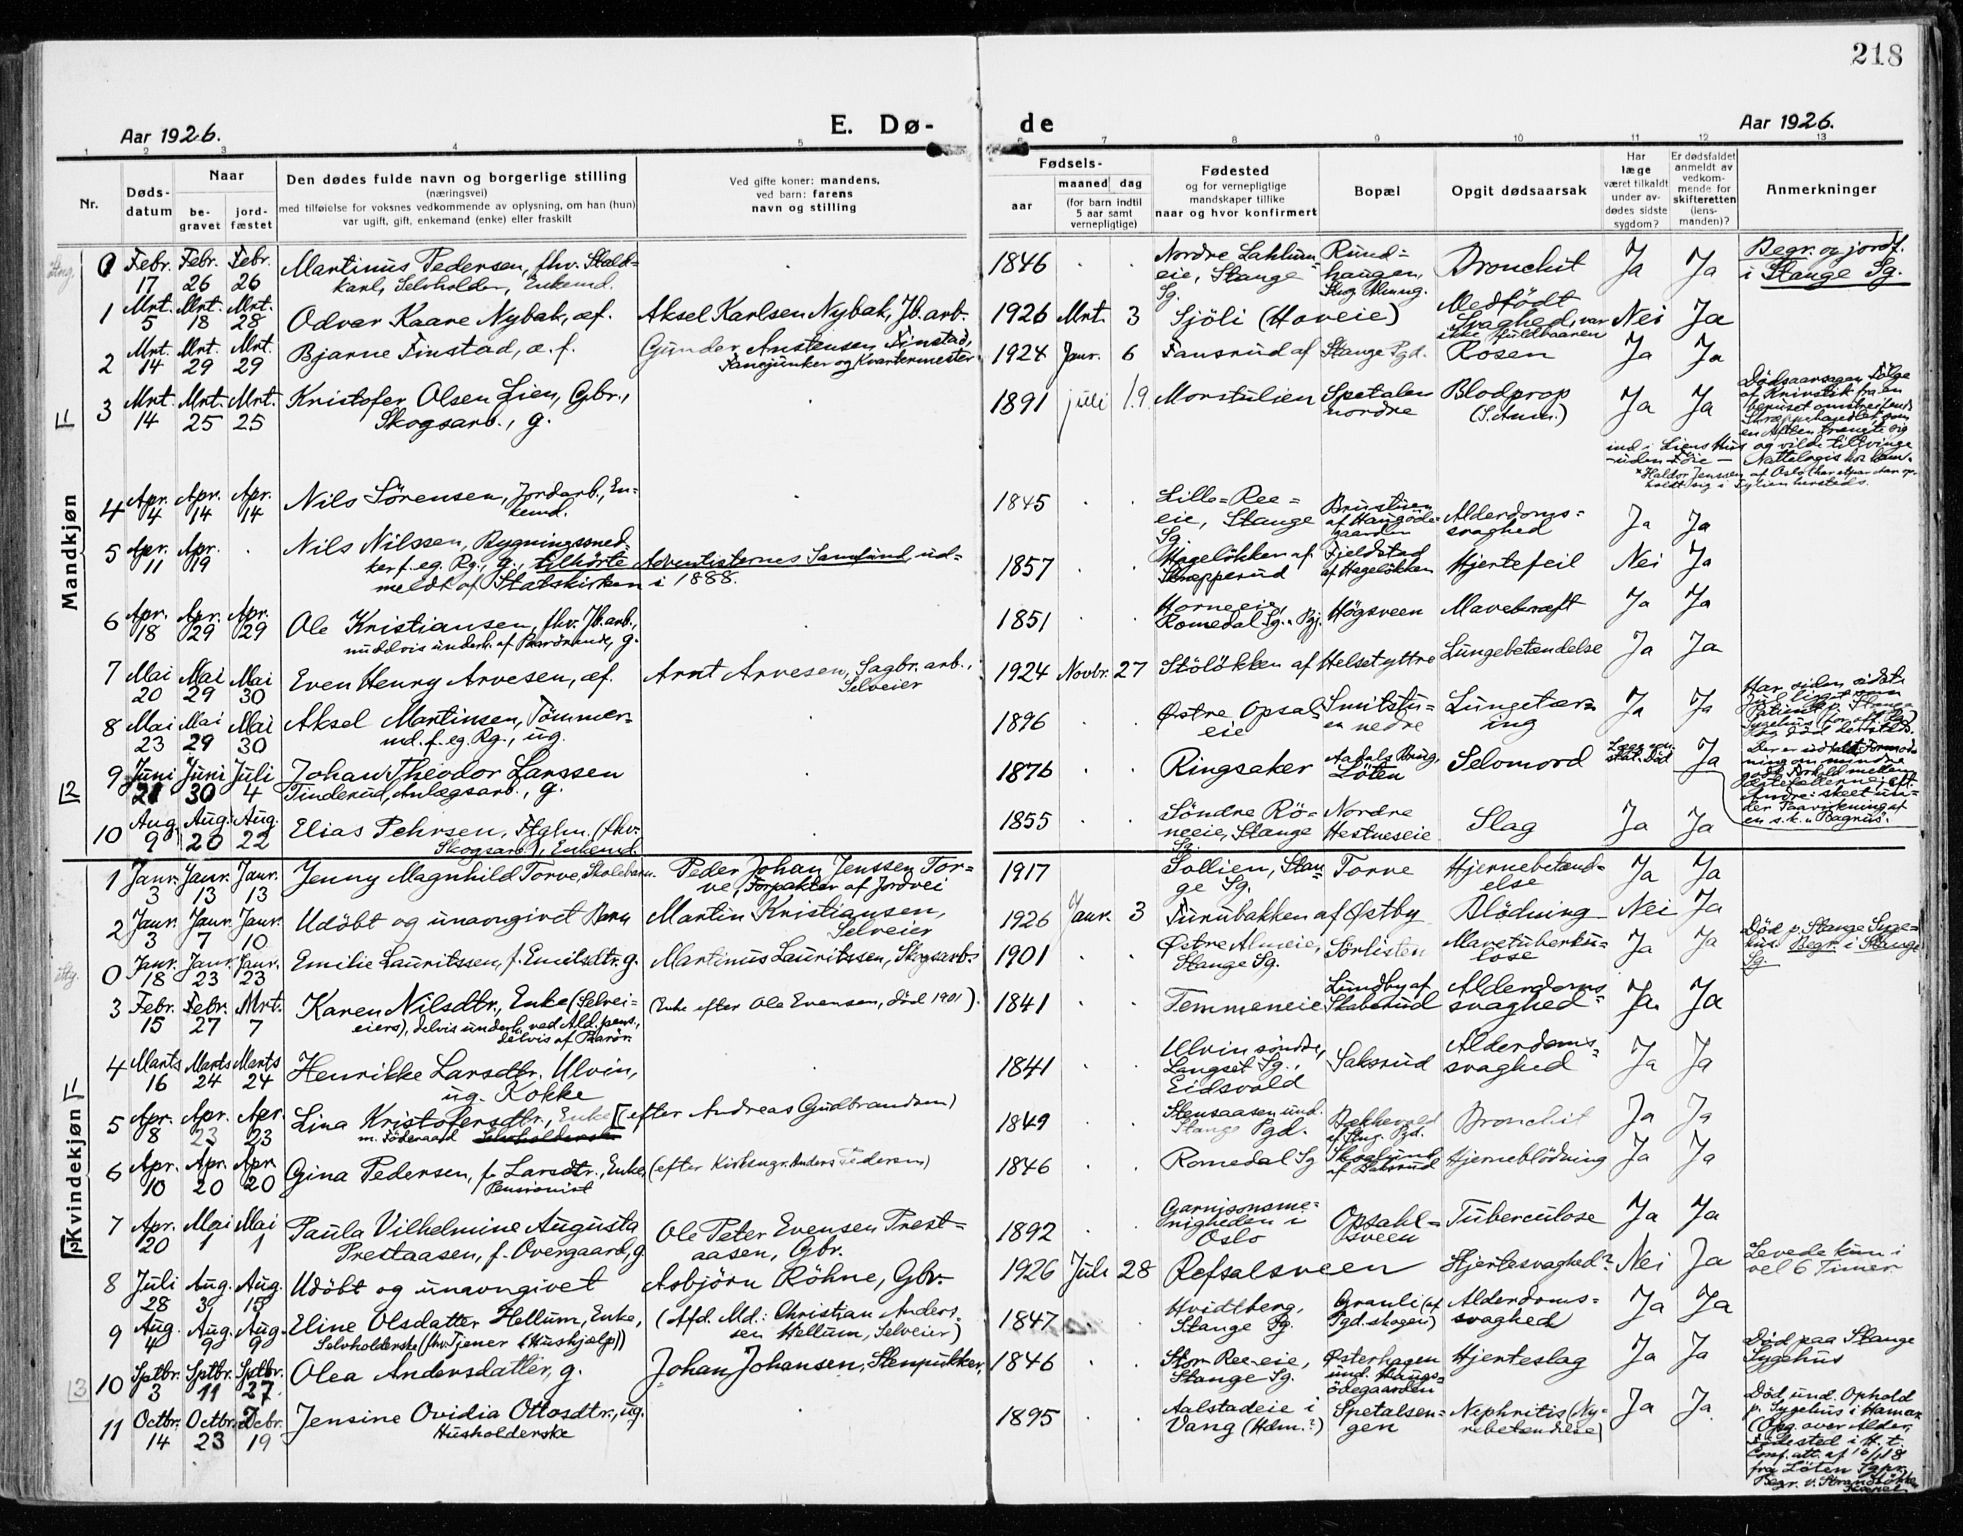 218
Aar 1926.
E. Dø-
de
Aar 1926.
1 2 3 4 5 7 8 9 10 11 12 13
Nr.
Døds-
datum
Naar
be-
gravet
jord-
fæstet
Den dødes fulde navn og borgerlige stilling
(næringsvei)
med tilføielse for voksnes vedkommende av oplysning, om han (hun)
var ugift, gift, enkemand (enke) eller fraskilt
Ved gifte koner: mandens,
ved barn: farens
navn og stilling
Fødsels-
aar
maaned dag
(for barn indtil
5 aar samt
vernepligtige)
Fødested
og for vernepligtige
mandskaper tillike
naar og hvor konfirmert
Bopæl
Opgit dødsaarsak
Har
læge
været tilkaldt
under av-
dødes sidste
sygdom?
Er dødsfaldet
anmeldt av
vedkom-
mende for
skifteretten
(lens-
manden)?
Anmerkninger
Mandkjøn
0 Febr. 17 Febr. 26 Febr. 26 Martinus Pedersen, fhv. Stald-
karl, Selvholder, Enkemd.
1846 Nordre Lahlum-
eie, Stange
Sg.
Rund-
haugen,
Bronchit Ja Ja Begr. og jordf.
i Stange Sg.
1 Mrt. 5 Mrt. 18 Mrt. 28 Odvar Kaare Nybak, æf. Aksel Karlsen Nybak, Jb. arb. 1926 Mrt. 3 Sjöli (Hoveie) Medfödt
Svaghed, var
ikke fuldbaaren Nei Ja
2 Mrt. 14 Mrt. 29 Mrt. 29 Bjarne Finstad, æ. f. Gunder Anstensen Finstad,
Fanejunker og Kvartermester 1924 Janr. 6 Fansrud af Stange Pgd. Rosen Ja Ja
3 Mrt. 14 Mrt. 25 Mrt. 25 Kristofer Olsen Lien, Gbr.,
Skogsarb., g.
1891 juli 19 Morstulien Spetalen
nordre
Blodprop
(S. Anm.) Ja Ja
4 Apr. 4 Apr. 14 Apr. 14 Nils Sörensen, Jordarb., En-
kemd.
1845 Lille-Ree-
eie, Stange
Sg.
Alderdoms-
svaghed Ja Ja
5 Apr. 11 Apr. 19 Nils Nilssen, Bygningssned-
ker f. eg. Rg., g., tilhörte Adventisternes Samfund, ud-
meldt af Statskirken i 1888.
1857 Hagelökken af
Skræpperud
Fjeldstad
af Hagelökken Hjertefeil Nei Ja
6 Apr. 18 Apr. 29 Apr. 29 Ole Kristiansen, fhv. Jb. arb.,
1851 Horneeie,
Romedal Sg. Högsveen Mavekræft Ja Ja
7 Mai 20 Mai 29 Mai 30 Even Henry Arvesen, æf. Arnt Arvesen, Sagbr. arb.,
Selveier 1924 Novbr. 27 Stölökken af Helset yttre Lungebetændelse Ja Ja
8 Mai 23 Mai 29 Mai 30 Aksel Martinsen, Tömmer-
md. f. eg. Rg., ug.
1896 Østre Opsal-
eie
Smitstu-
en nedre
Lungetær-
ing Ja Ja
9 Juni 21 Juni 30 Juli 4 Johan Theodor Larssen
Tinderud, Anlægsarb., g.
1876 Ringsaker Löten Selvmord Ja
10 Aug. 9 Aug. 20 Aug. 22 Elias Pehrsen, Ftglm. (fhv.
Skogsarb.), Enkemd.
1855 Söndre Rö-
neeie, Stange
Sg.
Nordre
Hestneseie Slag Ja Ja
Kvindekjøn
1 Janr. 3 Janr. 13 Janr. 13 Jenny Magnhild Torve, Skolebarn. Peder Johan Jenssen Tor-
ve, Forpakter af Jordvei 1917 Sollien, Stan-
ge Sg. Torve Hjernebetænd-
else Ja Ja
2 Janr. 3 Janr. 7 Janr. 10 Udöbt og unavngivet Barn Martin Kristiansen,
Selveier 1926 Janr. 3 Furubakken af Østby Blödning Nei Ja
0 Janr. 18 Janr. 23 Janr. 23 Emilie Lauritssen, f. Emilsdtr. g. Martinus Lauritssen, Skogsarb. 1901 Østre Almeie,
Stange Sg. Sörlisten Mavetuberku-
lose Ja Ja Död p. Stange Syge-
hus. Begr. i Stange
Sg.
3 Febr. 15 Febr. 27 Mrt. 7 Karen Nilsdtr., Enke (Selvei-
eiers), delvis underh. ved Ald. pens.,
delvis af
(Enke efter Ole Evensen, död 1901). 1841 Temmeneie Lundby af
Skaberud Alderdoms-
svaghed Ja Ja
4 Marts 16 Marts 24 Marts 24 Henrikke Larsdtr. Ulvin,
ug. Kokke
1841 Ulvin söndre,
Langset Sg.,
Eidsvold Saksrud Alderdoms-
svaghed Ja Ja
5 Apr. 8 Apr. 23 Apr. 23 Lina Kristofersdtr., Enke (efter Andreas Gudbrandsen)
m. Föderaad
1849 Stensaasen und.
Stange Pgd. Bækkevold
af Stng. Pgd. Bronchit Ja Ja
6 Apr. 10 Apr. 20 Apr. 20 Gina Pedersen, f. Larsdtr., Enke, (efter Kirkesgr. Anders Pedersen)
Pensionist
1846 Romedal Sg Skoglund
af Saksrud Hjerneblödning Ja Ja
7 Apr. 20 Mai 1 Mai 1 Paula Vilhelmine Augusta
Prestaasen, f. Overgaard, g. Ole Peter Evensen Prest-
aasen, Gbr. 1892 Garnisonsme-
nigheden i
Oslo Opsahl-
sveen Tuberculose Ja Ja
8 Juli 28 Aug. 3 Aug. 15 Udöbt og unavngivet Asbjörn Röhne, Gbr. 1926 Juli 28 Refsalsveen Hjertesvaghed? Nei Ja Levede kun i
vel 6 Timer
9 Aug. 4 Aug. 9 Aug. 9 Eline Olsdatter Hellum, Enke,
Selvholderske (fhv. Tjener (Huskjælp))
(Afd. Md.: Christian Anders-
sen Hellum, Selveier) 1847 Hvidtberg,
Stange Pg. Granli (af
Pgd. skogen) Alderdoms-
svaghed Ja Ja
10 Sptbr. 3 Sptbr. 11 Sptbr. 27 Olea Andersdatter, g. Johan Johansen, Stenpukker, 1846 Stor-Ree-eie,
Stange Sg. Østerhagen
und. Haugs-
ödegaarden Hjerteslag Ja Ja Död paa Stange
Sygehus
11 Octbr. 14 Octbr. 23 Dcbr. 19 Jensine Ovidia Ottosdtr., ug.
Husholderske
1895 Aalstadeie i
Vang (Hdm.?) Spetalsen-
gen Nephritis (Ny-
rebetændelse) Ja Ja Död und. Ophold
p. Sygehus i Hamar
(Opg. over Alder,
Födested i H. t.
Conf. att. af 16/11 18
fra Löten Sgpr.